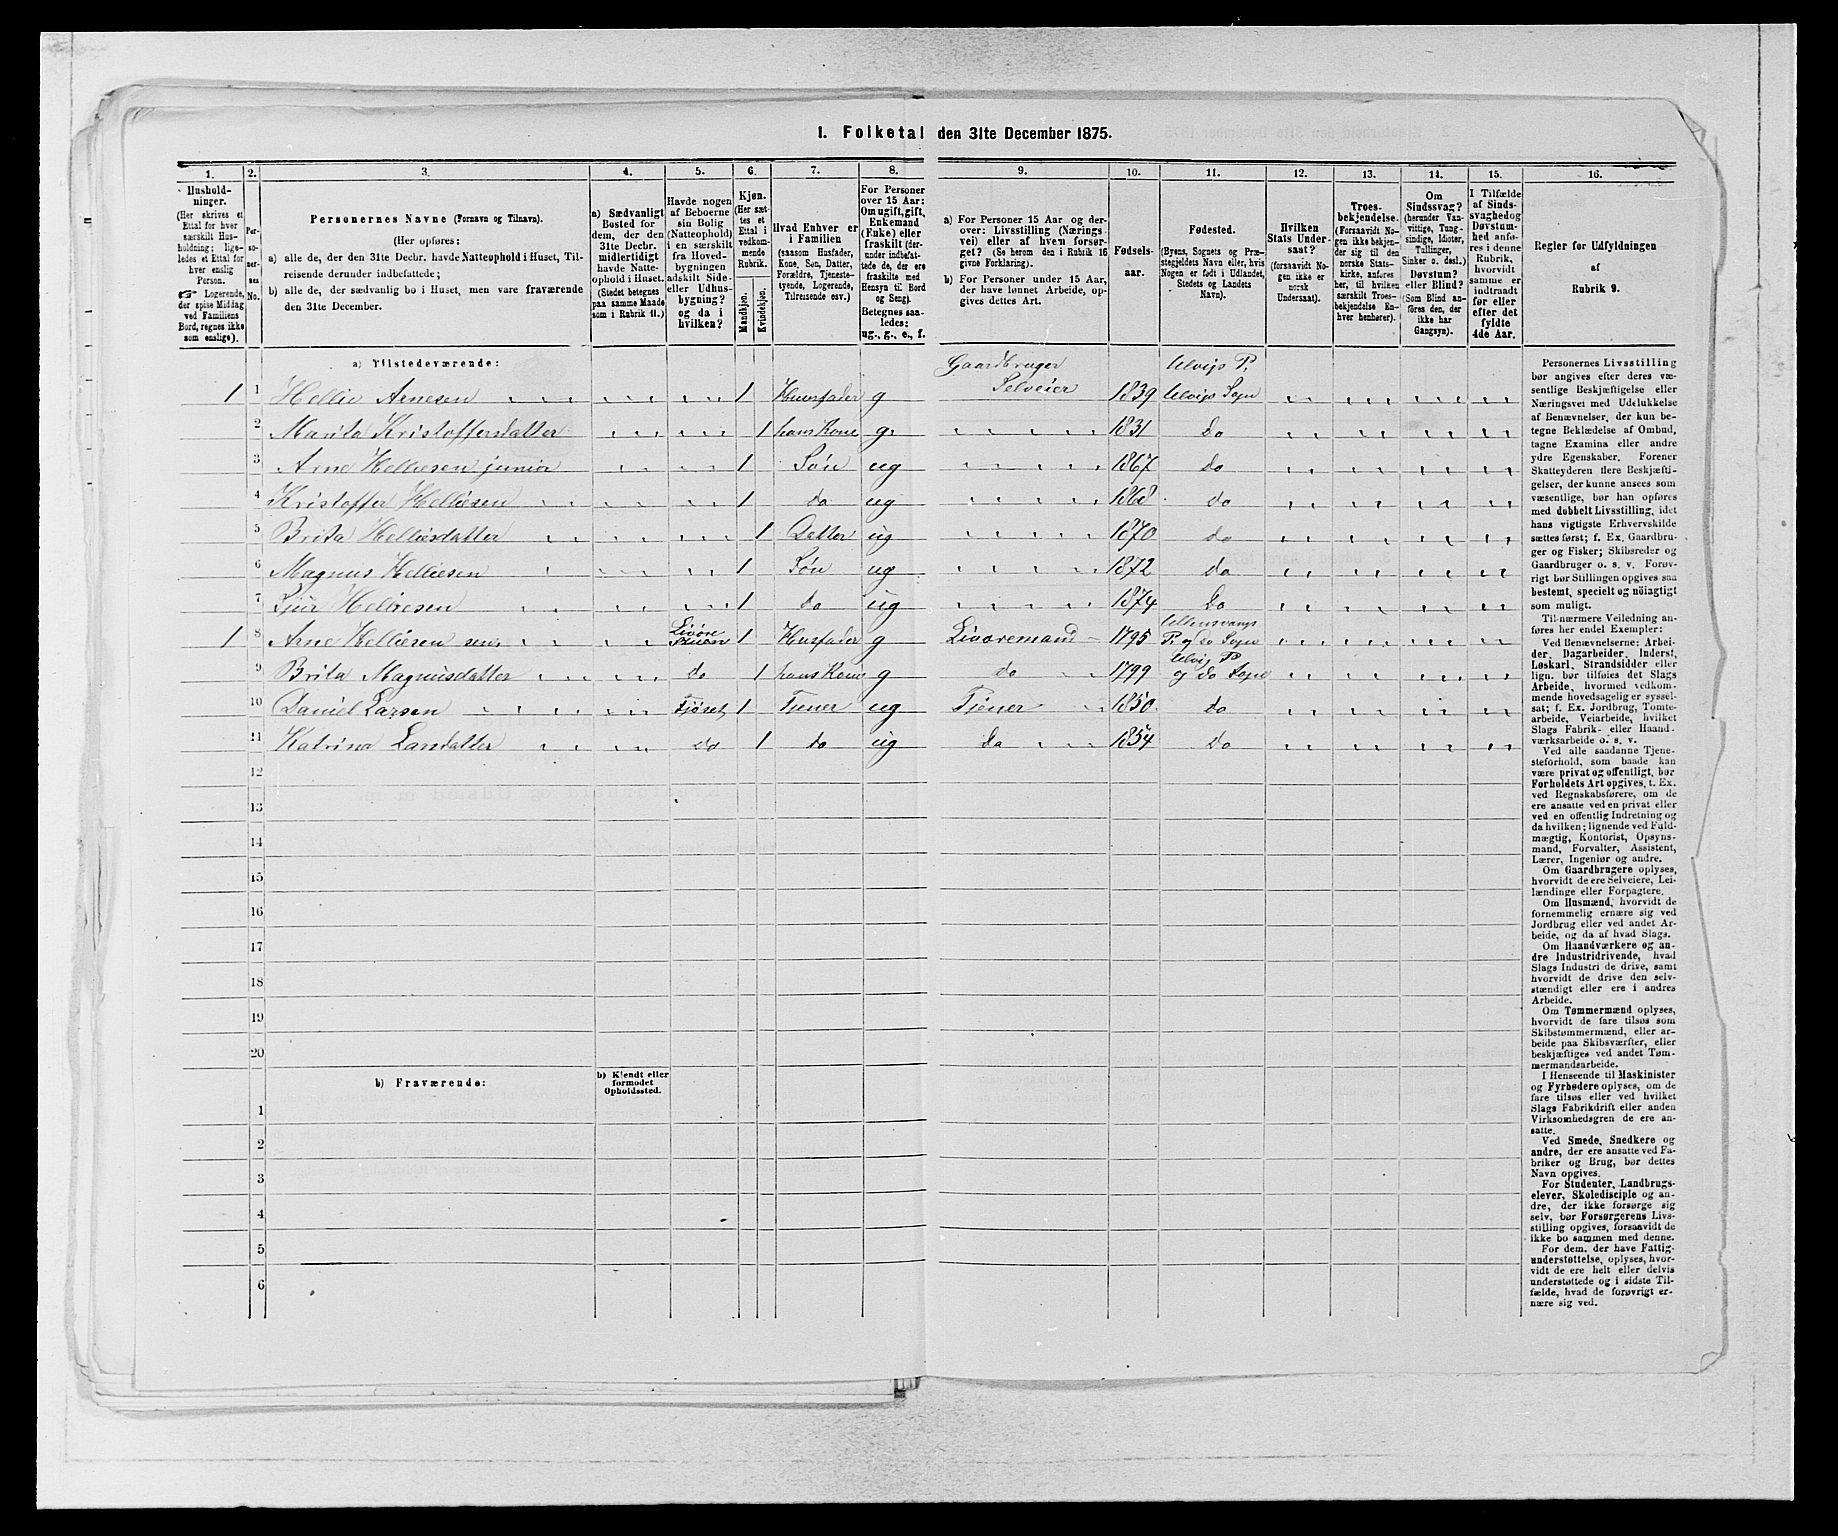 1. Folketal den 31te December 1875.
1. 2. 3. 4. 5. 6. 7. 8. 9. 10. 11. 12. 13. 14. 15. 16.
Hushold-
ninger.
(Her skrives et
Ettal for hver
særskilt Hus-
holdning; lige-
ledes et Ettal for
hver enslig
Person.
☞ Logerende,
der spise Middag
ved Familiens
Bord, regnes ikke
som enslige).
Per-
so-
ner-
nes
No.
Personernes Navne (Fornavn og Tilnavn).
(Her opføres:
a) alle de, der den 31te Decbr. havde Natteophold i Huset, Til-
reisende derunder indbefattede;
b) alle de, der sædvanlig bo i Huset, men vare fraværende
den 31te December.
a) Sædvanligt
Bosted for
dem, der den
31te Decbr.
midlertidigt
havde Natte-
ophold i Huset.
(Stedet betegnes
paa samme Maade
som i Rubrik 11.)
Havde nogen
af Beboerne
sin Bolig
(Natteophold)
i en særskilt
fra Hoved-
bygningen
adskilt Side-
eller Udhus-
bygning?
og da i
hvilken?
Kjøn.
(Her sæt-
tes et
Ettal i
vedkom-
mende
Rubrik.
Mandkjøn.
Kvindekjøn.
Hvad Enhver er
i Familien
(saasom Husfader,
Kone, Søn, Datter,
Forældre, Tjeneste-
tyende, Logerende,
Tilreisende osv.)
For Personer
over 15 Aar:
Om ugift, gift,
Enkemand
(Enke) eller
fraskilt (der-
under indbefat-
tede de, der ere
fraskilte med
Hensyn til Bord
og Seng).
Betegnes saa-
ledes:
ug., g., e., f.
a) For Personer 15 Aar og der-
over: Livsstilling (Nærings-
vei) eller af hvem forsør-
get? (Se herom den i Rubrik 16
givne Forklaring).
b) For Personer under 15 Aar,
der have lønnet Arbeide, op-
gives dettes Art.
Fødsels-
aar.
Fødested.
(Byens, Sognets og Præ-
stegjeldets Navn eller, hvis
Nogen er født i Udlandet,
Stedets og Landets
Navn).
Hvilken
Stats Under-
saat?
(forsaavidt No-
gen ikke er
norsk
Undersaat).
Troes-
bekjendelse.
(Forsaavidt No-
gen ikke bekjen-
der sig til den
norske Stats-
kirke, anføres
her, til hvilken
særskilt Troes-
bekjendelse En-
hver henhører).
Om
Sindssvag?
(herunder Van-
vittige, Tung-
sindige, Idioter,
Tullinger,
Sinker o. desl.)
Døvstum?
eller Blind?
(Som Blind an-
føres den, der
ikke har
Gangsyn).
I Tilfælde
af Sinds-
svaghed og
Døvstum-
hed anfø-
res i denne
Rubrik,
hvorvidt
samme er
indtraadt
før eller
efter det
fyldte
4de Aar.
Regler for Udfyldningen
af
Rubrik 9.
a) Tilstedeværende:
1 1 Hellie Arnesen 1 Huusfader g Gaardbruger Selveier 1839 Ulvigs P. Ulvigs Sogn
2 Marita Kristoffersdatter 1 hans Kone g. 1831 do
3 Arne Helliesen junior 1 Søn ug 1867 do
4 Kristoffer Helliesen 1 do ug 1868 do
5 Brita Helliesdatter 1 Datter ug 1870 do
6 Magnus Helliesen 1 Søn ug 1872 do
7 Sjur Helliesen 1 do ug 1874 do
1 8 Arne Helliesen sen. Livøre 1 Husfader g Livøremand 1795 Ullensvangs P. og do Sogn
9 Brita Magnusdatter do 1 hans Kone g do 1799 Ulvigs P. og do Sogn
10 Daniel Larsen Fjøset 1 Tjener ug Tjener 1850 do
11 Katrina Larsdatter do 1 do ug do 1854 do
12
13
14
15
16
17
18
19
20
b) Fraværende:
b) Kjendt eller
formodet
Opholdssted.
1
2
3
4
5
6
Personernes Livsstilling
bør angives efter deres væ-
sentlige Beskjæftigelse eller
Næringsvei med Udelukkelse
af Benævnelser, der kun be-
tegne Beklædelse af Ombud,
tagne Examina eller andre
ydre Egenskaber. Forener
Skatteyderen flere Beskjæfti-
gelser, der kunne ansees som
væsentlige, bør han opføres
med dobbelt Livsstilling, idet
hans vigtigste Erhvervskilde
sættes først; f. Ex. Gaardbru-
ger og Fisker; Skibsreder og
Gaardbruger o. s. v. Forøv-
rigt bør Stillingen opgives saa
bestemt, specielt og nöiagtigt
som muligt.
Til nærmere Veiledning an-
føres her endel Exempler:
Ved Benævnelserne: Arbei-
der, Dagarbeider, Inderst,
Løskarl, Strandsidder eller
lign. bør tilføies det Slags
Arbeide, hvormed vedkom-
mende hovedsagelig er syssel-
sat; f. Ex. Jordbrug, Tomte-
arbeide, Veiarbeide, hvilket
Slags Fabrik- eller Haand-
værksarbeide o. s. v.
Ved alle saadanne Tjene-
steforhold, som baade kan
være privat og offentligt, bør
Forholdets Art opgives, t. Ex.
ved Regnskabsførere, om de
ere ansatte ved en privat eller
ved en offentlig Indretning og
da hvilken; lignende ved Fuld-
mægtig, Kontorist, Opsyns-
mand, Forvalter, Assistent,
Lærer, Ingeniør og andre.
Om Gaardbrugere oplyses,
hvorvidt de ere Selveiere, Lei-
lændinge eller Forpagtere.
Om Husmænd, hvorvidt de
fornemmelig ernære sig ved
Jordbrug eller ved andet Ar-
beide, og da af hvad Slags.
Om Haandværkere og an-
dre Industridrivende, hvad
Slags Industri de drive, samt
hvorvidt de drive den selv-
stændigt eller ere i andres
Arbeide.
Om Tømmermænd oplyses,
hvorvidt de fare tilsøs som
Skibstømmermænd, eller ar-
beide paa Skibsværfter, eller
beskjæftiges ved andet Tøm-
mermandsarbeide.
I Henseende til Maskinister
og Fyrbødere oplyses, om de
fare tilsøs eller ved hvilket
Slags Fabrikdrift eller anden
Virksomhedsgren de ere an-
satte.
Ved Smede, Snedkere og
andre, der ere ansatte ved Fa-
briker og Brug, bør dettes
Navn opgives.
For Studenter, Landbrugs-
elever, Skoledisciple og an-
dre, der ikke forsørge sig
selv, bør Forsørgerens Livs-
stilling opgives, forsaavidt de
ikke bo sammen med denne.
For dem, der have Fattig-
understøttelse, oplyses, hvor-
vidt de ere helt eller delvis
understøttede og i sidste Til-
fælde, hvad de forøvrigt er-
nære sig ved.